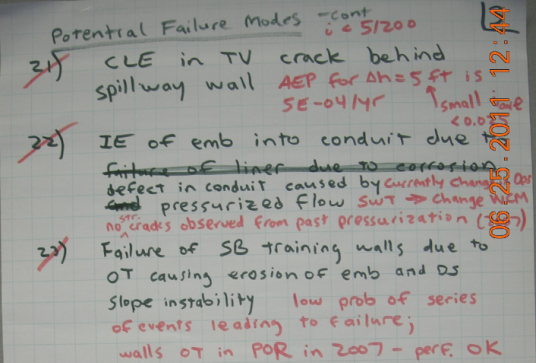 Potential Failure Modes - cont
i < 51200
21) CLE in TV crack behind
spillway wall AEP for Δh = 5 ft is
5E-04/yr small
< 0.0
22) IE of emb into conduit due
failure of liner due to corrosion
defect in conduit caused by currently
and pressurized flow SWT → Change WCM
no str. cracks observed from past pressurization
23) Failure of SB training walls due to
OT causing erosion of emb and DS
slope instability low prob of series
of events leading to failure;
walls OT in POR in 2007 - perf. OK
06-25-2011 12:44